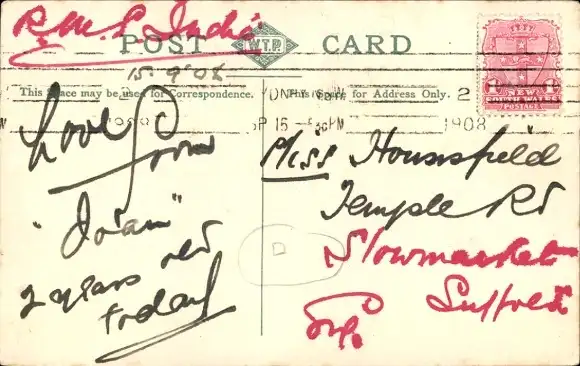 R.M.S. India
POST W.T.P. CARD
15.9.08
This Space may be used for Correspondence.
This Space for Address Only.
1908
SP 15 - 5 30 PM
2
1908
NEW
SOUTH WALES
POSTAGE
Love
From
"Joan"
2 years old
today
Miss Hounsfield
Temple Rd
Stowmarket
Suffolk
D